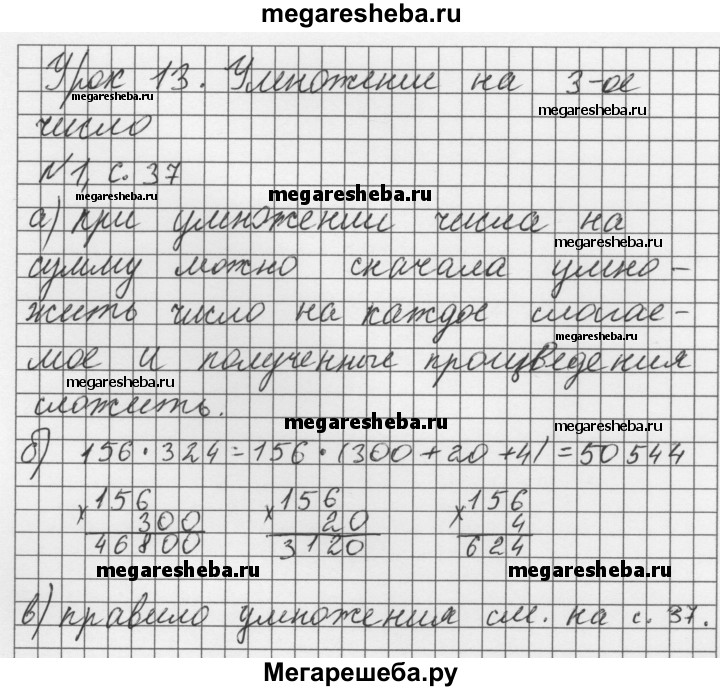 megaresheba.ru
Урок 13. Умножение на 3-ое
megaresheba.ru
megaresheba.ru
число
№1, с. 37
megaresheba.ru
megaresheba.ru
а) при умножении числа на
megaresheba.ru
сумму можно сначала умно-
жить число на каждое слагае-
megaresheba.ru
мое и полученные произведения
megaresheba.ru
сложить.
megaresheba.ru
megaresheba.ru
б) 156 · 324 = 156 · (300 + 20 + 4) = 50544
× 156 × 156 × 156
300 20 4
46800 3120 624
megaresheba.ru megaresheba.ru megaresheba.ru
в) правило умножения см. на с. 37.
Мегарешеба.ру